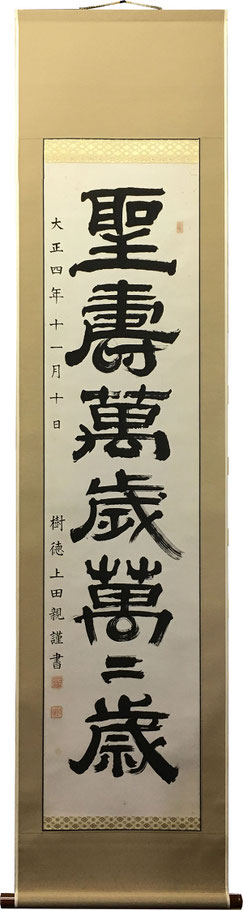 聖壽萬歳萬二歳
大正四年十一月十日 樹徳上田親謹書